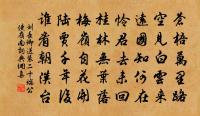 蒼梧萬里路
空見白雲來
遠國知何在
憐君去未回
桂林無葉落
梅嶺自花開
陸賈千年後
誰看朝漢臺
劉長卿送裴二十端公
使嶺南